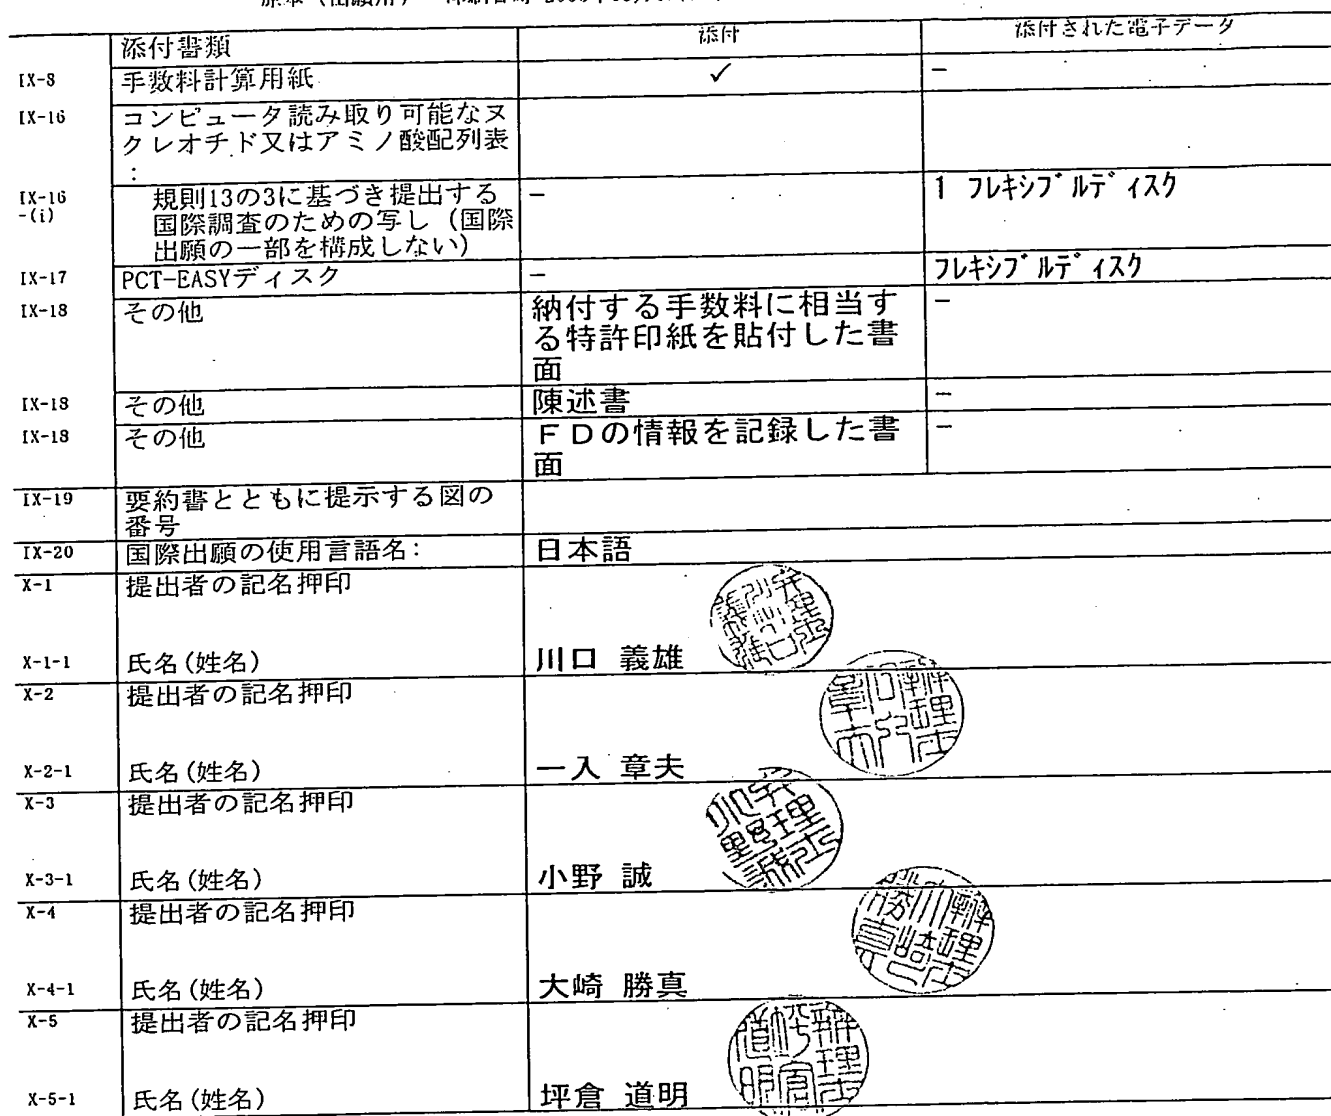 添付書類 添付 添付された電子データ
IX-8 手数料計算用紙 ✓ -
IX-16 コンピュータ読み取り可能なヌ
クレオチド又はアミノ酸配列表
:
IX-16 規則13の3に基づき提出する - 1 フレキシブルディスク
-(i) 国際調査のための写し（国際
出願の一部を構成しない）
IX-17 PCT-EASYディスク - フレキシブルディスク
IX-18 その他 納付する手数料に相当す -
る特許印紙を貼付した書
面
IX-18 その他 陳述書 -
IX-18 その他 ＦＤの情報を記録した書 -
面
IX-19 要約書とともに提示する図の
番号
IX-20 国際出願の使用言語名: 日本語
X-1 提出者の記名押印
X-1-1 氏名(姓名) 川口 義雄
X-2 提出者の記名押印
X-2-1 氏名(姓名) 一入 章夫
X-3 提出者の記名押印
X-3-1 氏名(姓名) 小野 誠
X-4 提出者の記名押印
X-4-1 氏名(姓名) 大崎 勝真
X-5 提出者の記名押印
X-5-1 氏名(姓名) 坪倉 道明